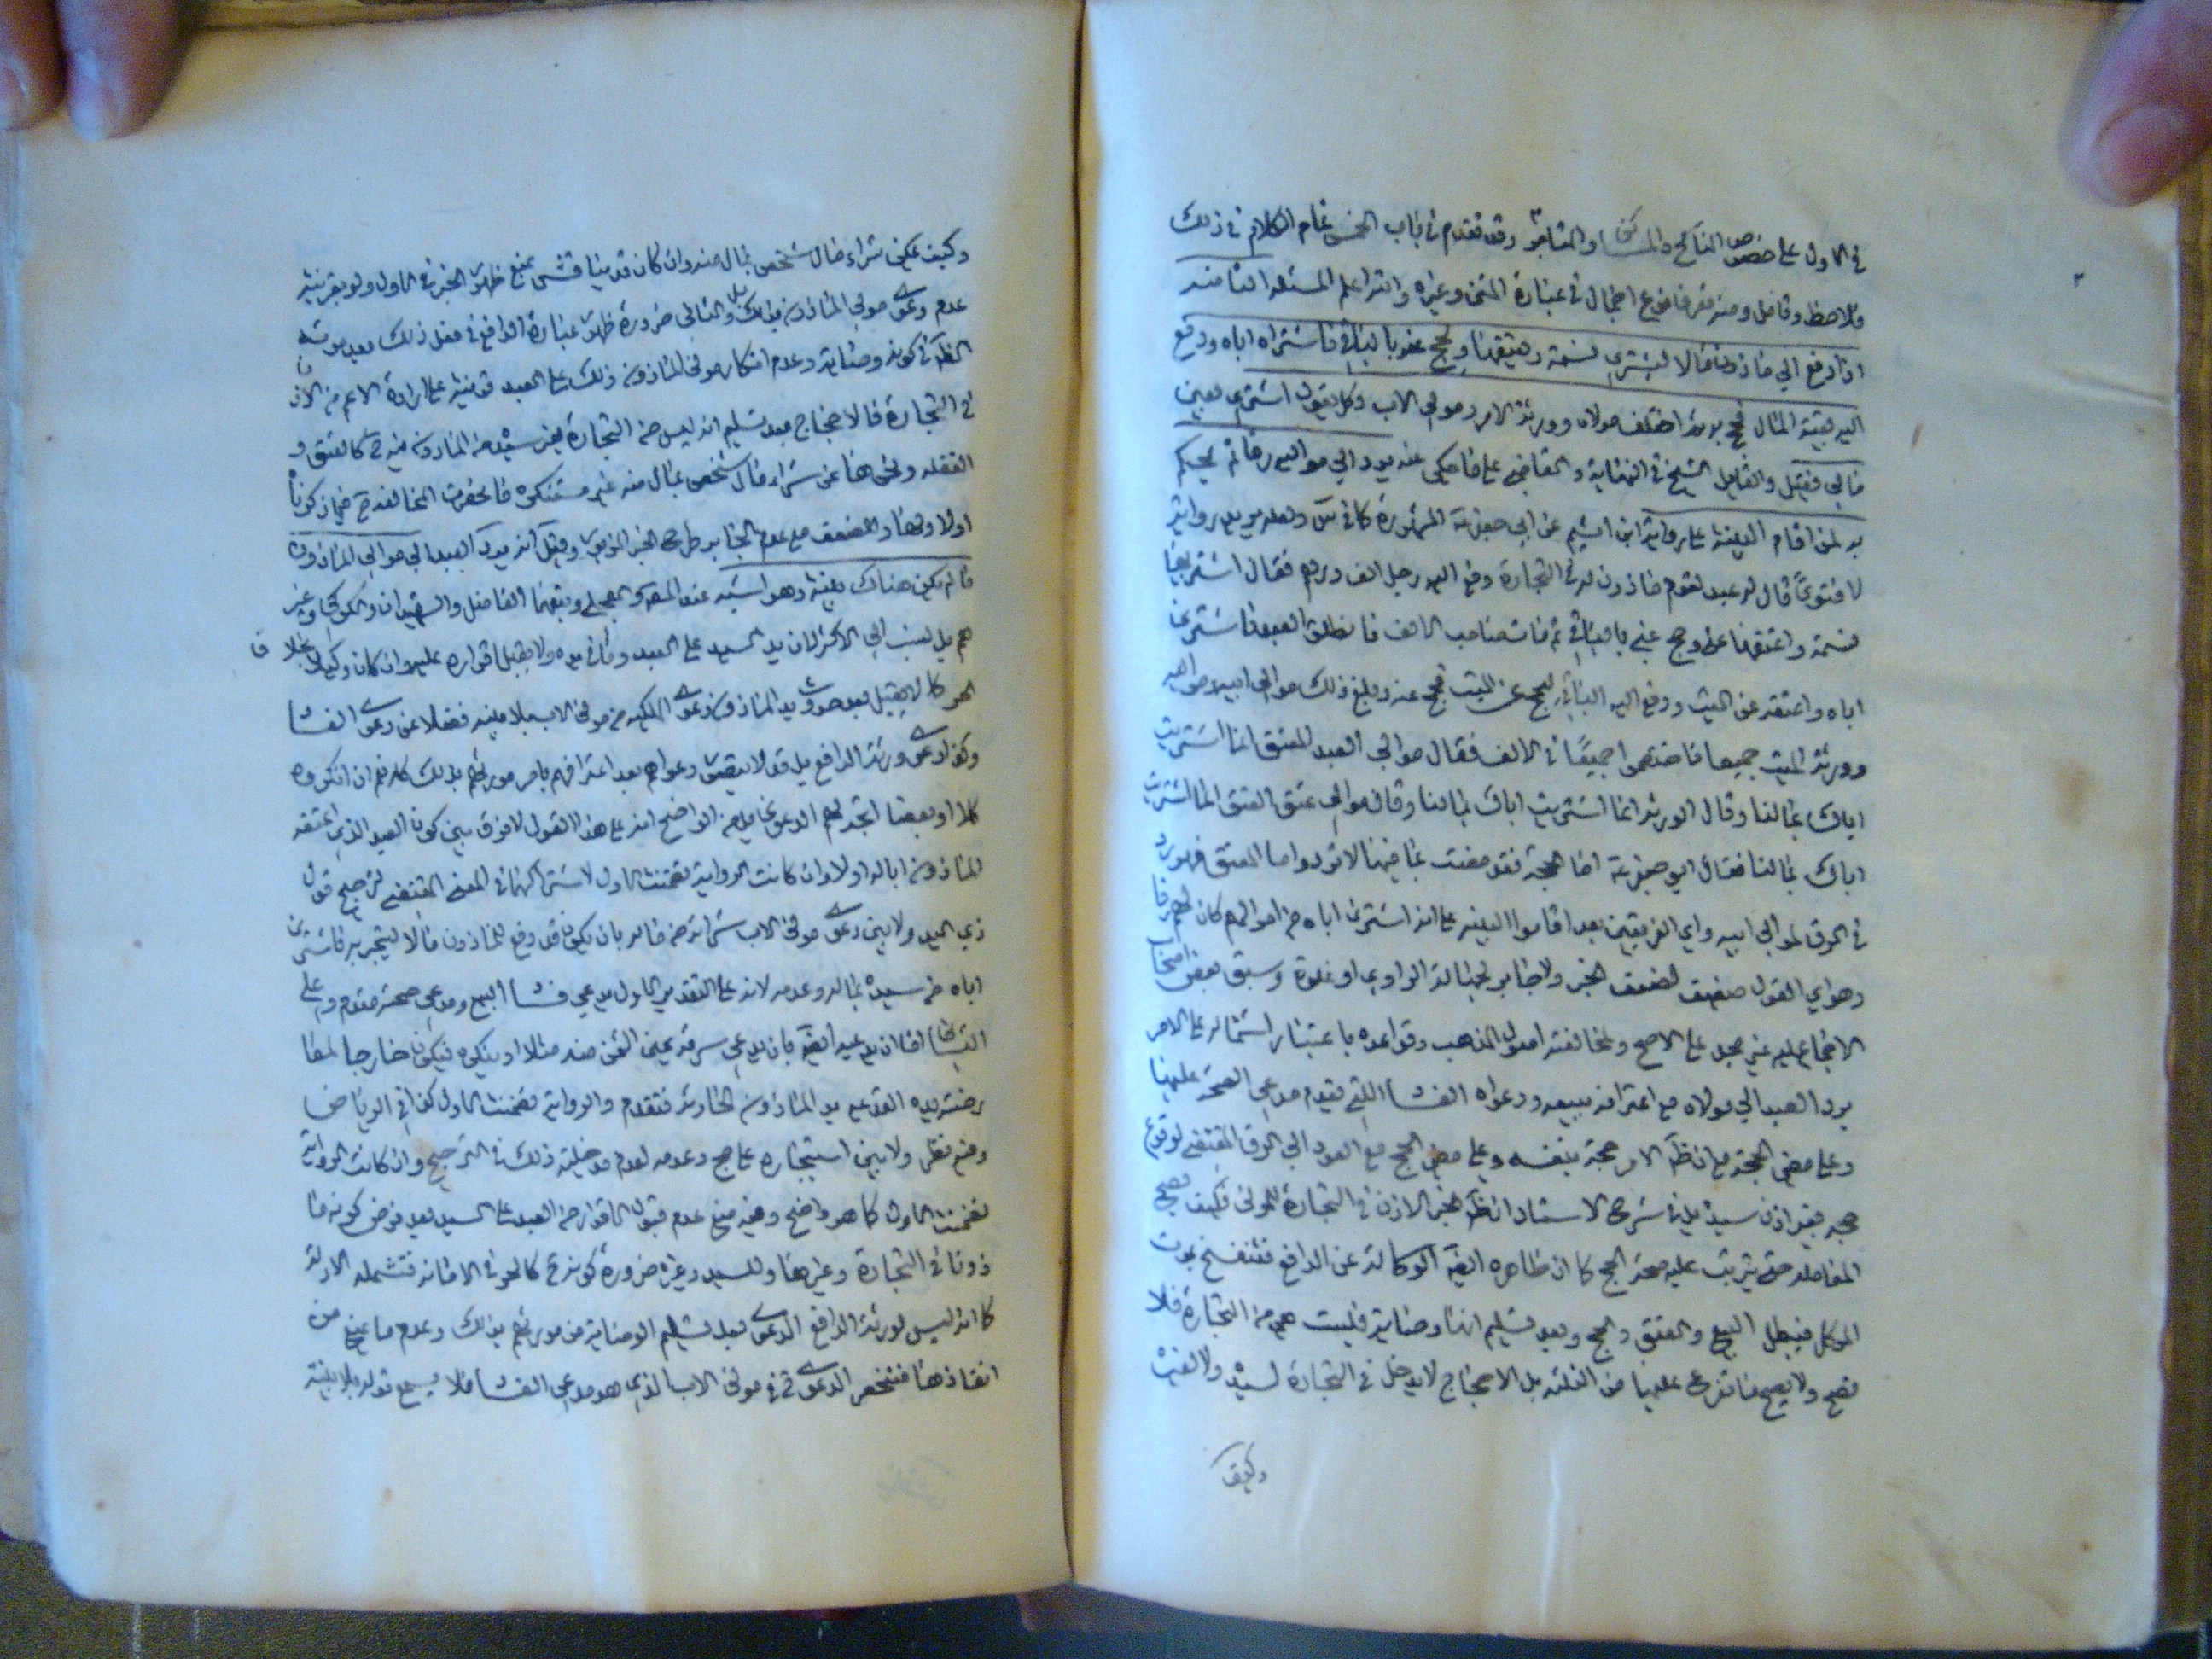 في الاول على خصوص المناكح والمساكن والمتاجر وقد تقدم في باب الخمس تمام الكلام في ذلك
فلاحظ وتامل ومنه يعرف ما في اجمال في عبارة المتن وغيره والله اعلم المسئلة الثامنة
اذا دفع الى ماذون مالا ليشتري نسمة ويعتقها ويحج عنه بالباقي فاشترى اباه ودفع
اليه بقية المال فحج به ثم اختلف مولاه وورثة الامر ومولى الاب وكل يقول اشترى بعين
مالي فقيل والقايل الشيخ في النهاية والقاضي على ما حكي عنه يرد الى مواليه رقا ثم يحكم
به لمن اقام البينة على رواية ابن اشيم عن ابي جعفر ع المشهورة كما في لك ولعله يريد رواية
لا فتوى قال له عبد لقوم ماذون له في التجارة دفع اليه رجل الف درهم فقال اشتر بها
نسمة واعتقها عني وحج عني بالباقي ثم مات صاحب الالف فانطلق العبد فاشترى
اباه واعتقه عن الميت ودفع اليه الباقي ليحج عن الميت فحج عنه وبلغ ذلك موالي ابيه ومواليه
وورثة الميت جميعا فاختصموا جميعا في الالف فقال موالي العبد المعتق انما اشتريت
اباك بمالنا وقال الورثة انما اشتريت اباك بمالنا وقال موالي العبد المعتق انما اشتريت
اباك بمالنا فقال ابو جعفر ع اما الحجة فقد مضت بما فيها لا ترد واما المعتق فهو رد
في الرق لموالي ابيه واي الفريقين بعد اقاموا البينه على انه اشترى اباه من اموالهم كان لهم رقا
وهو اي القول ضعيف لضعف الخبر ولا جابر لجهالة الراوي او غلوه وسبق بعض اصحاب
الاجماع عليه غير مجد على الاصح ولمخالفته اصول المذهب وقواعده باعتبار اشتماله على الامر
برد العبد الى مولاه مع اعترافه ببيعه ودعواه الفساد التي يقدم مدعي الصحة عليها
وعلى مضي الحجة مع ان ظ الامر حجة بنفسه وعلى مضي الحج مع العود الى الرق المقتضي لوقوع
حجه بغير اذن سيده بل في شرح الاستاد ان ظ الخبر الاذن في التجارة للمولى فكيف تصح
المعاملة حتى يترتب عليه صحة الحج كما ان ظاهره ايضا الوكالة عن الدافع فتنفسخ بموت
الموكل فيبطل البيع والعتق والحج وبعد تسليم انها وصاية فليست هي من التجارة فلا
تصح ولا يصح ما تفرع عليها من الثلثه بل الاحجاج لا يدخل في التجارة لسيده ولا لغيره
وكيف
وكيف يمكن شراء مال شخص بمال منه وان كان قد يناقش بمنع ظهور الخبر في الاول ولو بقرينة
عدم دعوى مولى الماذون بذلك بل والثاني ضرورة ظهور عبارة الدافع في فعل ذلك بعد موته
الظ في كونه وصاية وعدم انكار مولى الماذون ذلك على العبد قرينة على ارادة الاعم من الاذن
في التجارة فالاحجاج بعد تسليم انه ليس من التجارة لغير سيده الماذون فيه كالعتق و
الغفلة ونحوها عن شراء مال شخص بمال منه غير مستنكرة فانحصرت المخالفة ح فيما ذكرنا
اولا ولها وللضعف مع عدم الجابر طرح الخبر المزبور وقيل انه يرد العبد الى موالي الماذون
ما لم يكن هناك بينة وهو اشبه عند المصنف والعجلي وتبعهما الفاضل والشهيدان والكركي وغير
هم بل نسب الى الاكثر لان يد السيد على العبد وما في يده ولا يقبل اقراره عليه وان كان وكيلا بخلاف
الحر كما لا يقبل بعد صوت يد الماذون دعوى الملكية من مولى الاب بلا بينه فضلا عن دعوى الفساد
وكذا دعوى ورثة الدافع بل قد لا يتصور دعواهم بعد اعترافهم بامر مورثهم بذلك كله نعم ان انكروه
كلا او بعضا اتجه لهم الدعوى ومن الواضح انه على هذا القول لا فرق بين كون العبد الذي اعتقه
الماذون ابا له اولا وان كانت الرواية تضمنت الاول لاشتراكهما في المعنى المقتضي لترجيح قول
ذي اليد ولا بين دعوى مولى الاب شرائه من ماله بان يكون قد دفع للماذون مالا ليتجر به فاشترى
اباه من سيده بماله وعدمه لانه على التقدير الاول يدعي فساد البيع ومدعي صحته مقدم وعلى
الثاني اما ان يدعيه ايضا بان يدعي سرقة عين الثمن منه مثلا او ينكره فيكون خارجا لمعا
رضته يده القديمة يد الماذون الحادثة فتقدم والرواية تضمنت الاول كذا في الرياض
وفيه نظر ولا بين استيجاره على حج وعدمه لعدم مدخلية ذلك في الترجيح وان كانت الرواية
تضمنت الاول كما هو واضح وفيه منع عدم قبول الاقرار من العبد على السيد بعد فرض كونه ما
ذونا في التجارة وغيرها وللسيد وغيره ضرورة كونه ح كالحر في الامانة فتشمله الادلة
كما انه ليس لورثة الدافع الدعوى بعد تسليم الوصاية من مورثهم بذلك وعدم مانع من
انفاذها فتنحصر الدعوى ح في مولى الاب الذي هو مدعي الفساد فلا يسمع قوله بلا بينة